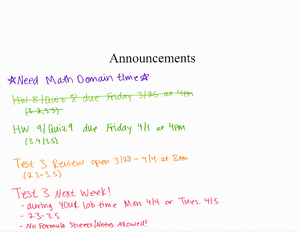 Announcements
☆Need Math Domain time☆
HW 8/Quiz 8 due Friday 3/25 at 4pm
(3.2,3.3)
HW 9/Quiz 9 due Friday 4/1 at 4pm
(3.4/3.5)
Test 3 Review open 3/28-4/4 at 8am
(2.3-3.5)
Test 3 Next Week!
- during YOUR lab time Mon 4/4 or Tues. 4/5
- 2.3-3.5
- No Formula Sheets/Notes Allowed!